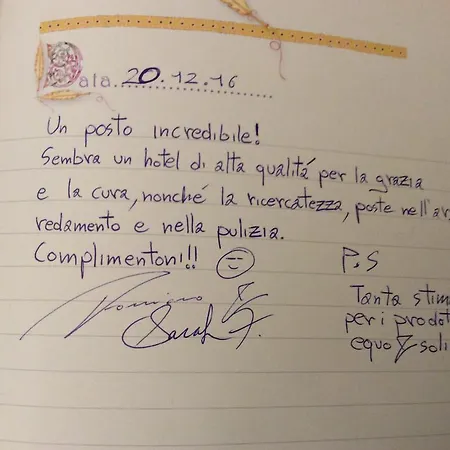 Data 20.12.16
Un posto incredibile!
Sembra un hotel di alta qualitá per la grazia
e la cura, nonché la ricercatezza, poste nell'ar
redamento e nella pulizia.
Complimentoni!!
P.S
Tanta stim
per i prodot
equo & soli
Sarah F.